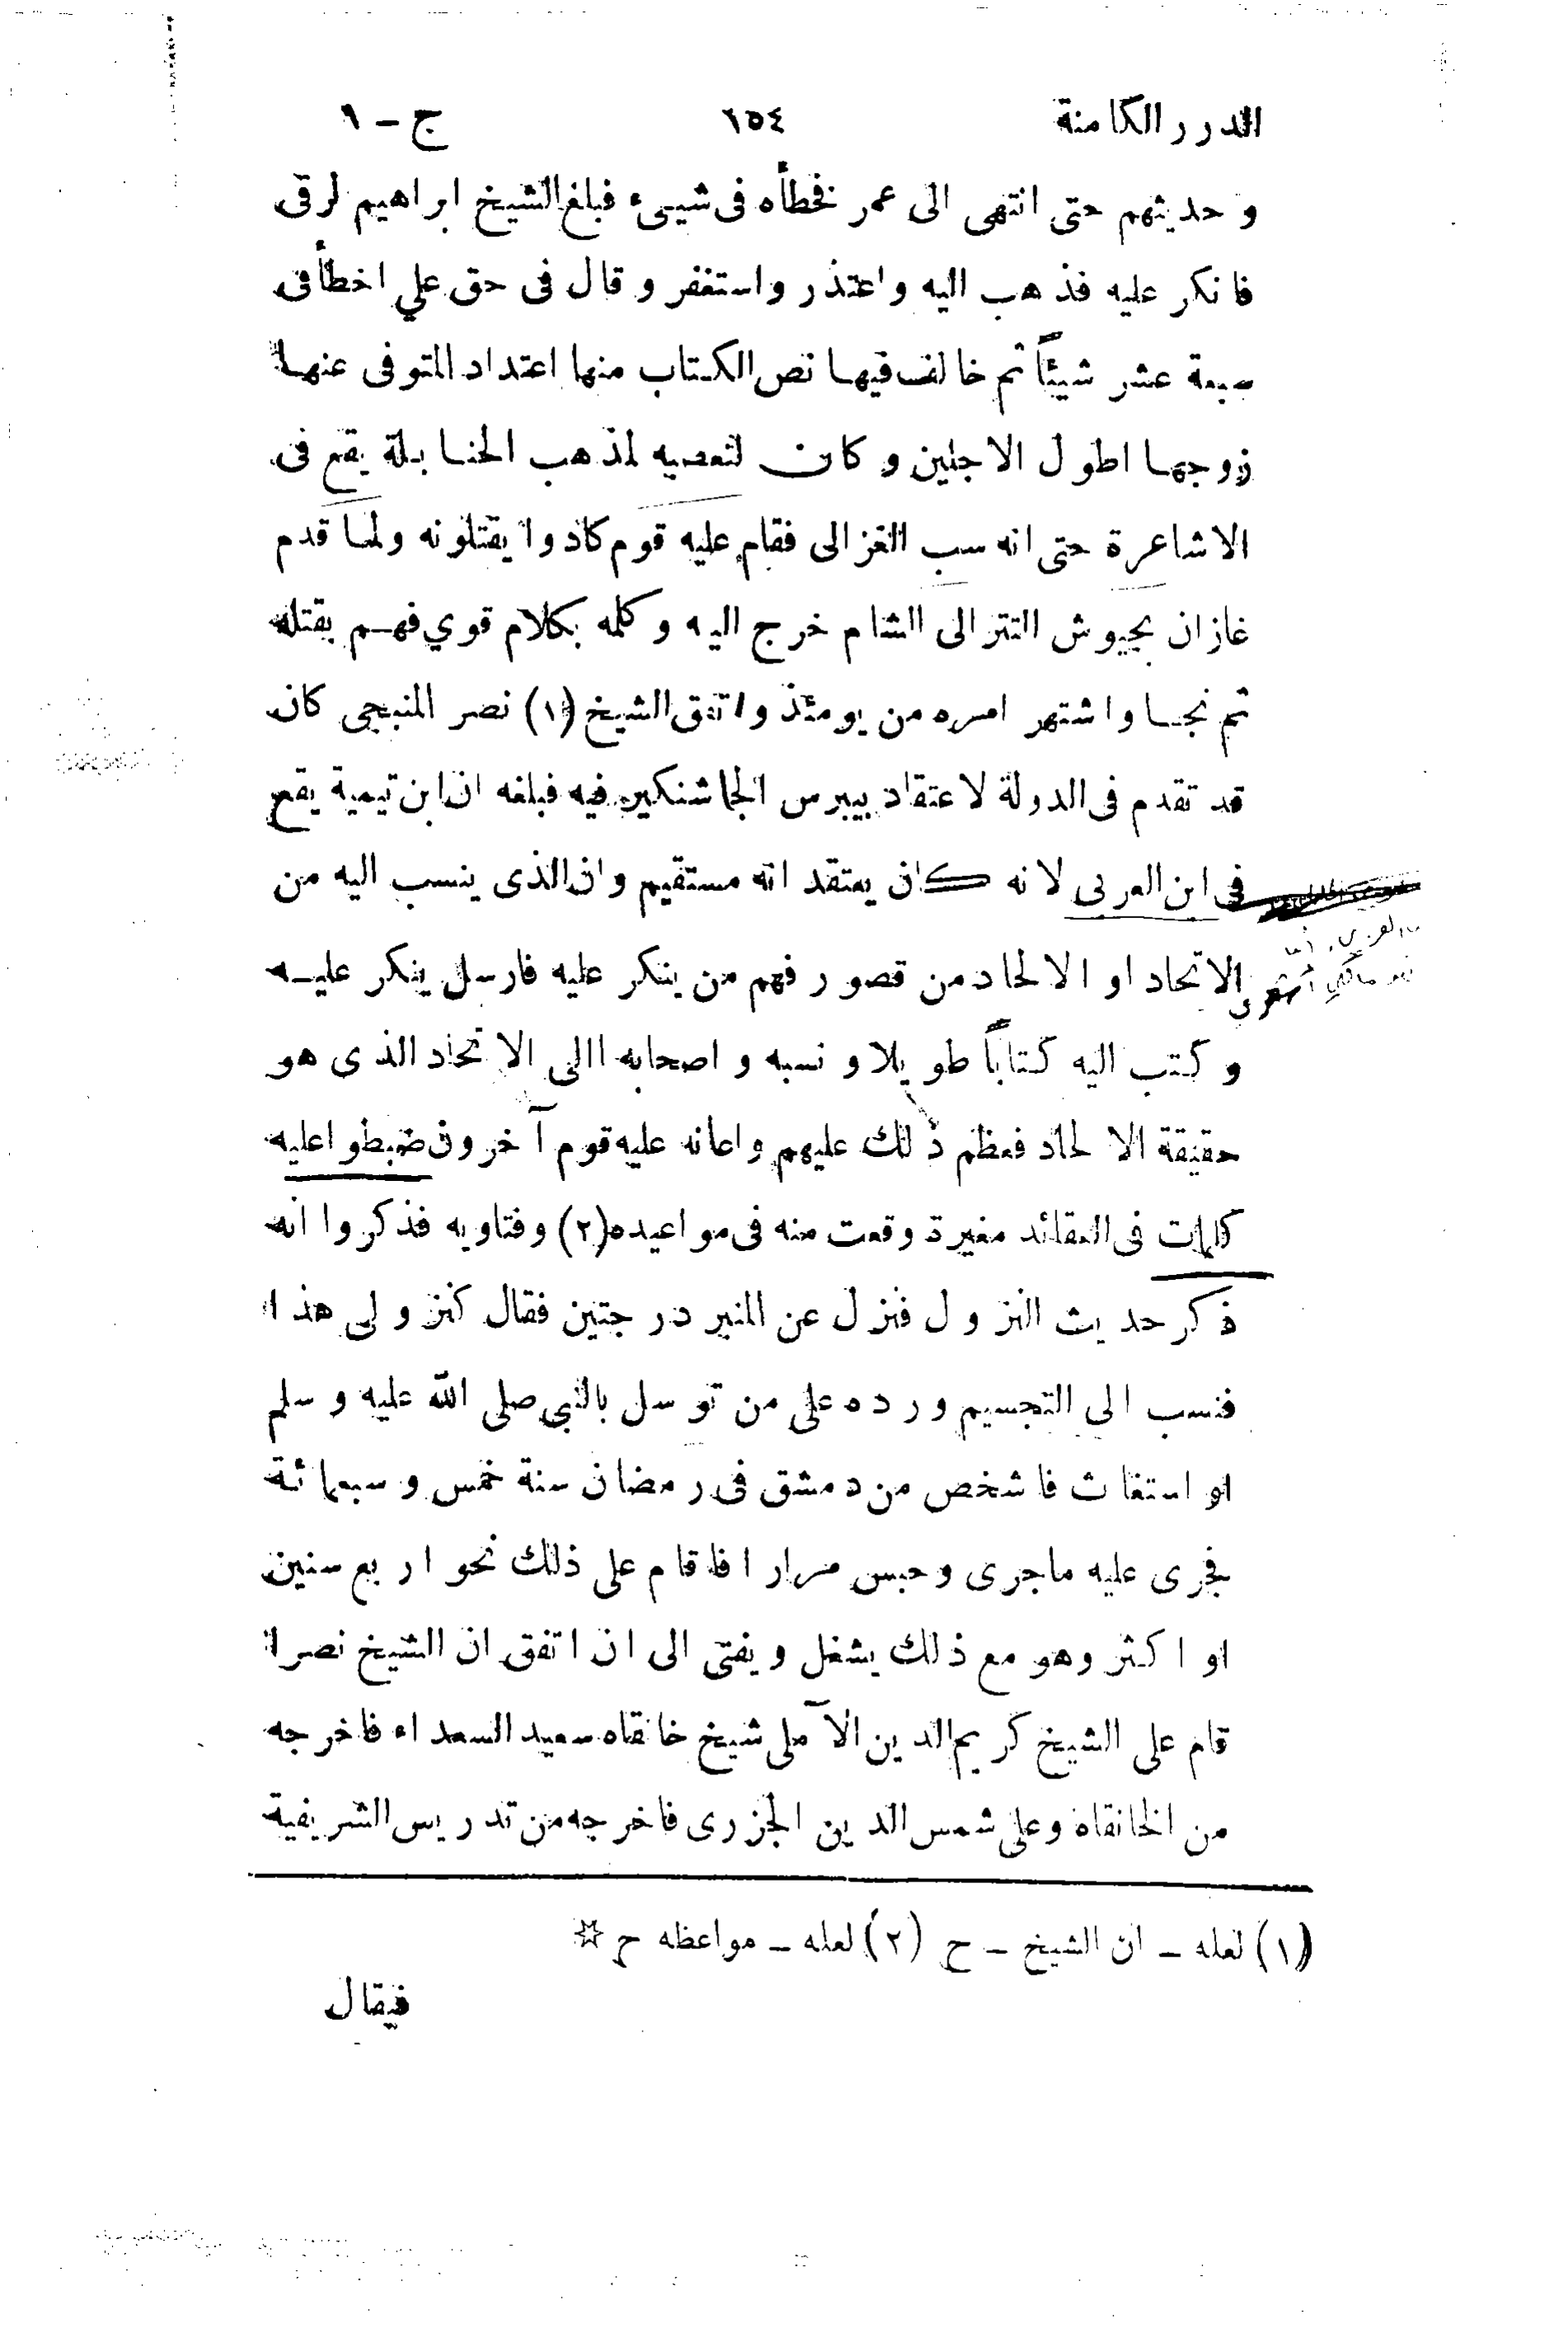 الدرر الكامنة ١٥٤ ج – ١
وحديثهم حتى انتهى الى عمر فخطأه فى شيىء فبلغ الشيخ ابراهيم لرقى
فانكر عليه فذهب اليه واعتذر واستغفر وقال فى حق علي اخطأ فى
سبعة عشر شيئاً ثم خالف فيها نص الكتاب منها اعتداد المتوفى عنها
زوجها اطول الاجلين وكان لتعصبه لمذهب الحنابلة يقع فى
الاشاعرة حتى انه سب الغزالى فقام عليه قوم كادوا يقتلونه ولما قدم
غازان بجيوش التتر الى الشام خرج اليه وكلمه بكلام قوي فهم بقتله
ثم نجا واشتهر امره من يومئذ واتفق الشيخ (١) نصر المنبجى كان
قد تقدم فى الدولة لاعتقاد بيبرس الجاشنكير فيه فبلغه ان ابن تيمية يقع
فى ابن العربى لانه كان يعتقد انه مستقيم وان الذى ينسب اليه من
الاتحاد او الالحاد من قصور فهم من ينكر عليه فارسل ينكر عليه
وكتب اليه كتاباً طويلا ونسبه واصحابه االى الاتحاد الذى هو
حقيقة الالحاد فعظم ذلك عليهم واعانه عليه قوم آخرون ضبطوا عليه
كلمات فى العقائد مغيرة وقعت منه فى مواعيده (٢) وفتاويه فذكروا انه
ذكر حديث النزول فنزل عن المنبر درجتين فقال كنزولى هذا
فنسب الى التجسيم ورده على من توسل بالنبي صلى الله عليه وسلم
او استغاث فاشخص من دمشق فى رمضان سنة خمس وسبعمائة
فجرى عليه ماجرى وحبس مرارا فاقام على ذلك نحو اربع سنين
او اكثر وهو مع ذلك يشغل ويفتى الى ان اتفق ان الشيخ نصرا
قام على الشيخ كريم الدين الآملى شيخ خانقاه سعيد السعداء فاخرجه
من الخانقاه وعلى شمس الدين الجزرى فاخرجه من تدريس الشريفية
(١) لعله – ان الشيخ – ح (٢) لعله – مواعظه ح ☆
فيقال